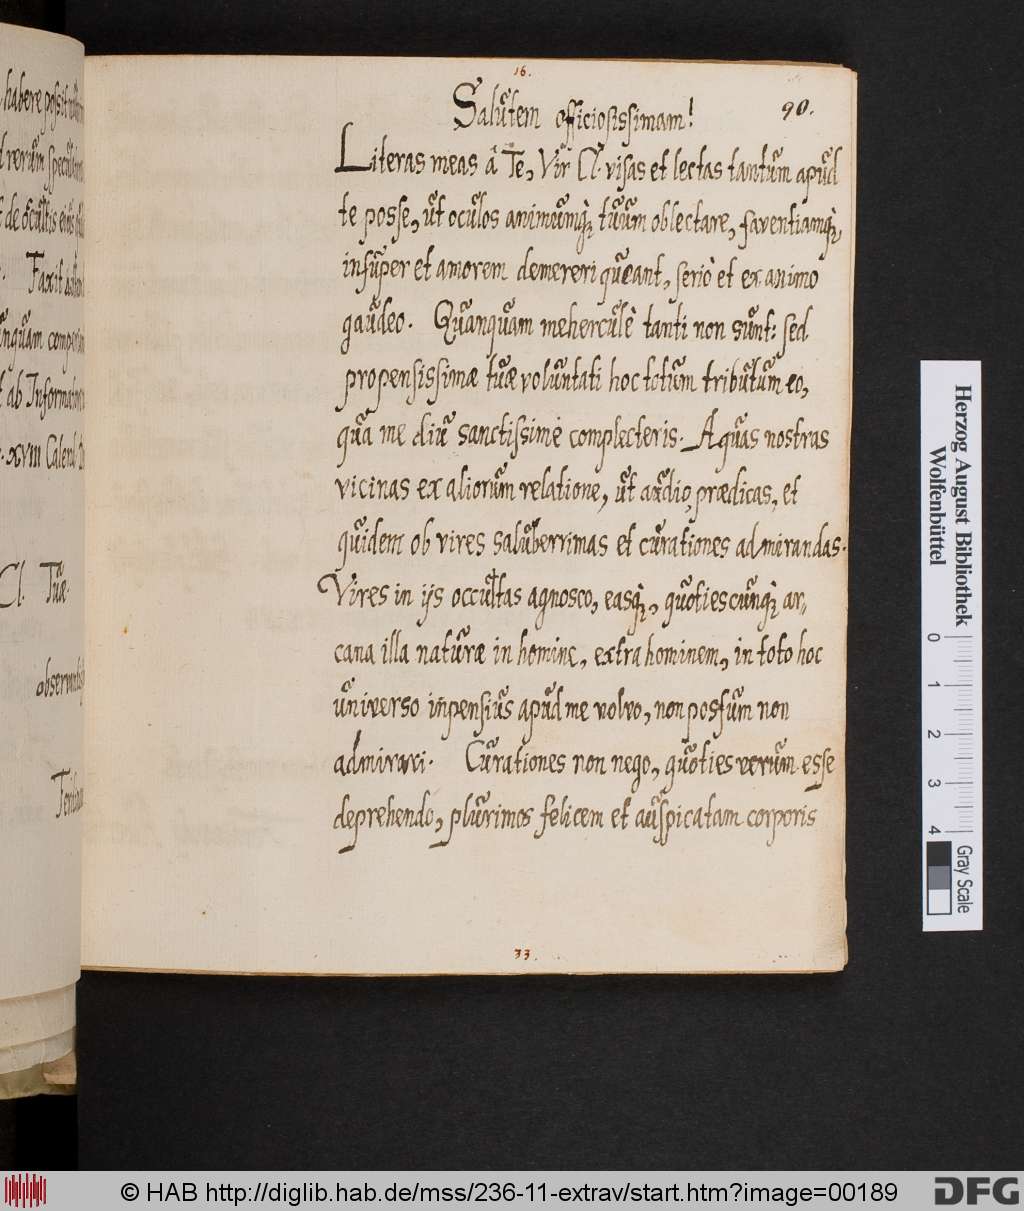 habere possit
rerum
de occultis eius
Faxit
unquam
ab Informatore
XVIII Calend.
Cl. Tuæ.
16.
90.
Salutem officiosissimam!
Literas meas â Te, Vir Cl. visas et lectas tantum apud
te posse, ut oculos animumq́; tuum oblectare, faventiamq́;
insuper et amorem demereri queant, seriò et ex animo
gaudeo. Quanquam meherculè tanti non sunt: sed
propensissimæ tuæ voluntati hoc totum tributum eo,
qua me diu sanctissimè complecteris. Aquas nostras
vicinas ex aliorum relatione, ut audio, prædicas, et
quidem ob vires saluberrimas et curationes admirandas.
Vires in ijs occultas agnosco, easq́;, quotiescunq́; ar-
cana illa naturæ in homine, extra hominem, in toto hoc
universo inpensius apud me volvo, non possum non
admirari. Curationes non nego, quoties verum esse
deprehendo, plurimos felicem et auspicatam corporis
33.
Herzog August Bibliothek
Wolfenbüttel
0 1 2 3 4
Gray Scale
© HAB http://diglib.hab.de/mss/236-11-extrav/start.htm?image=00189
DFG